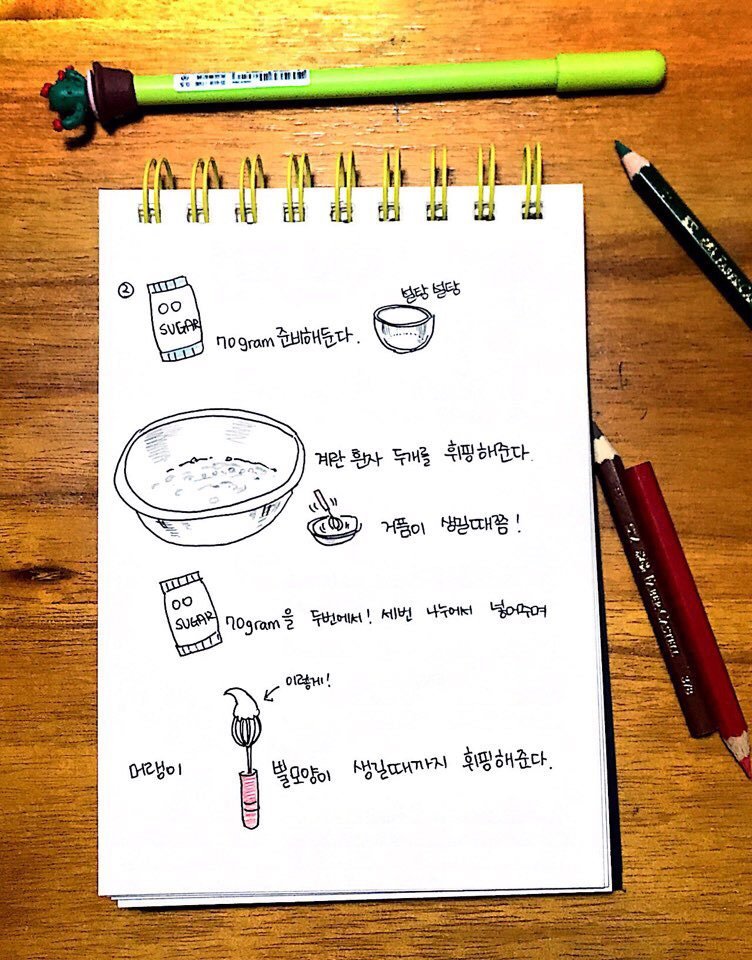 ② OO SUGAR 70gram 준비해둔다. 설탕 설탕
계란 흰자 두개를 휘핑해준다.
거품이 생길때쯤!
OO SUGAR 70gram을 두번에서! 세번 나누어서 넣어주며
이렇게!
머랭이 뿔모양이 생길때까지 휘핑해준다.
FABER-CASTELL